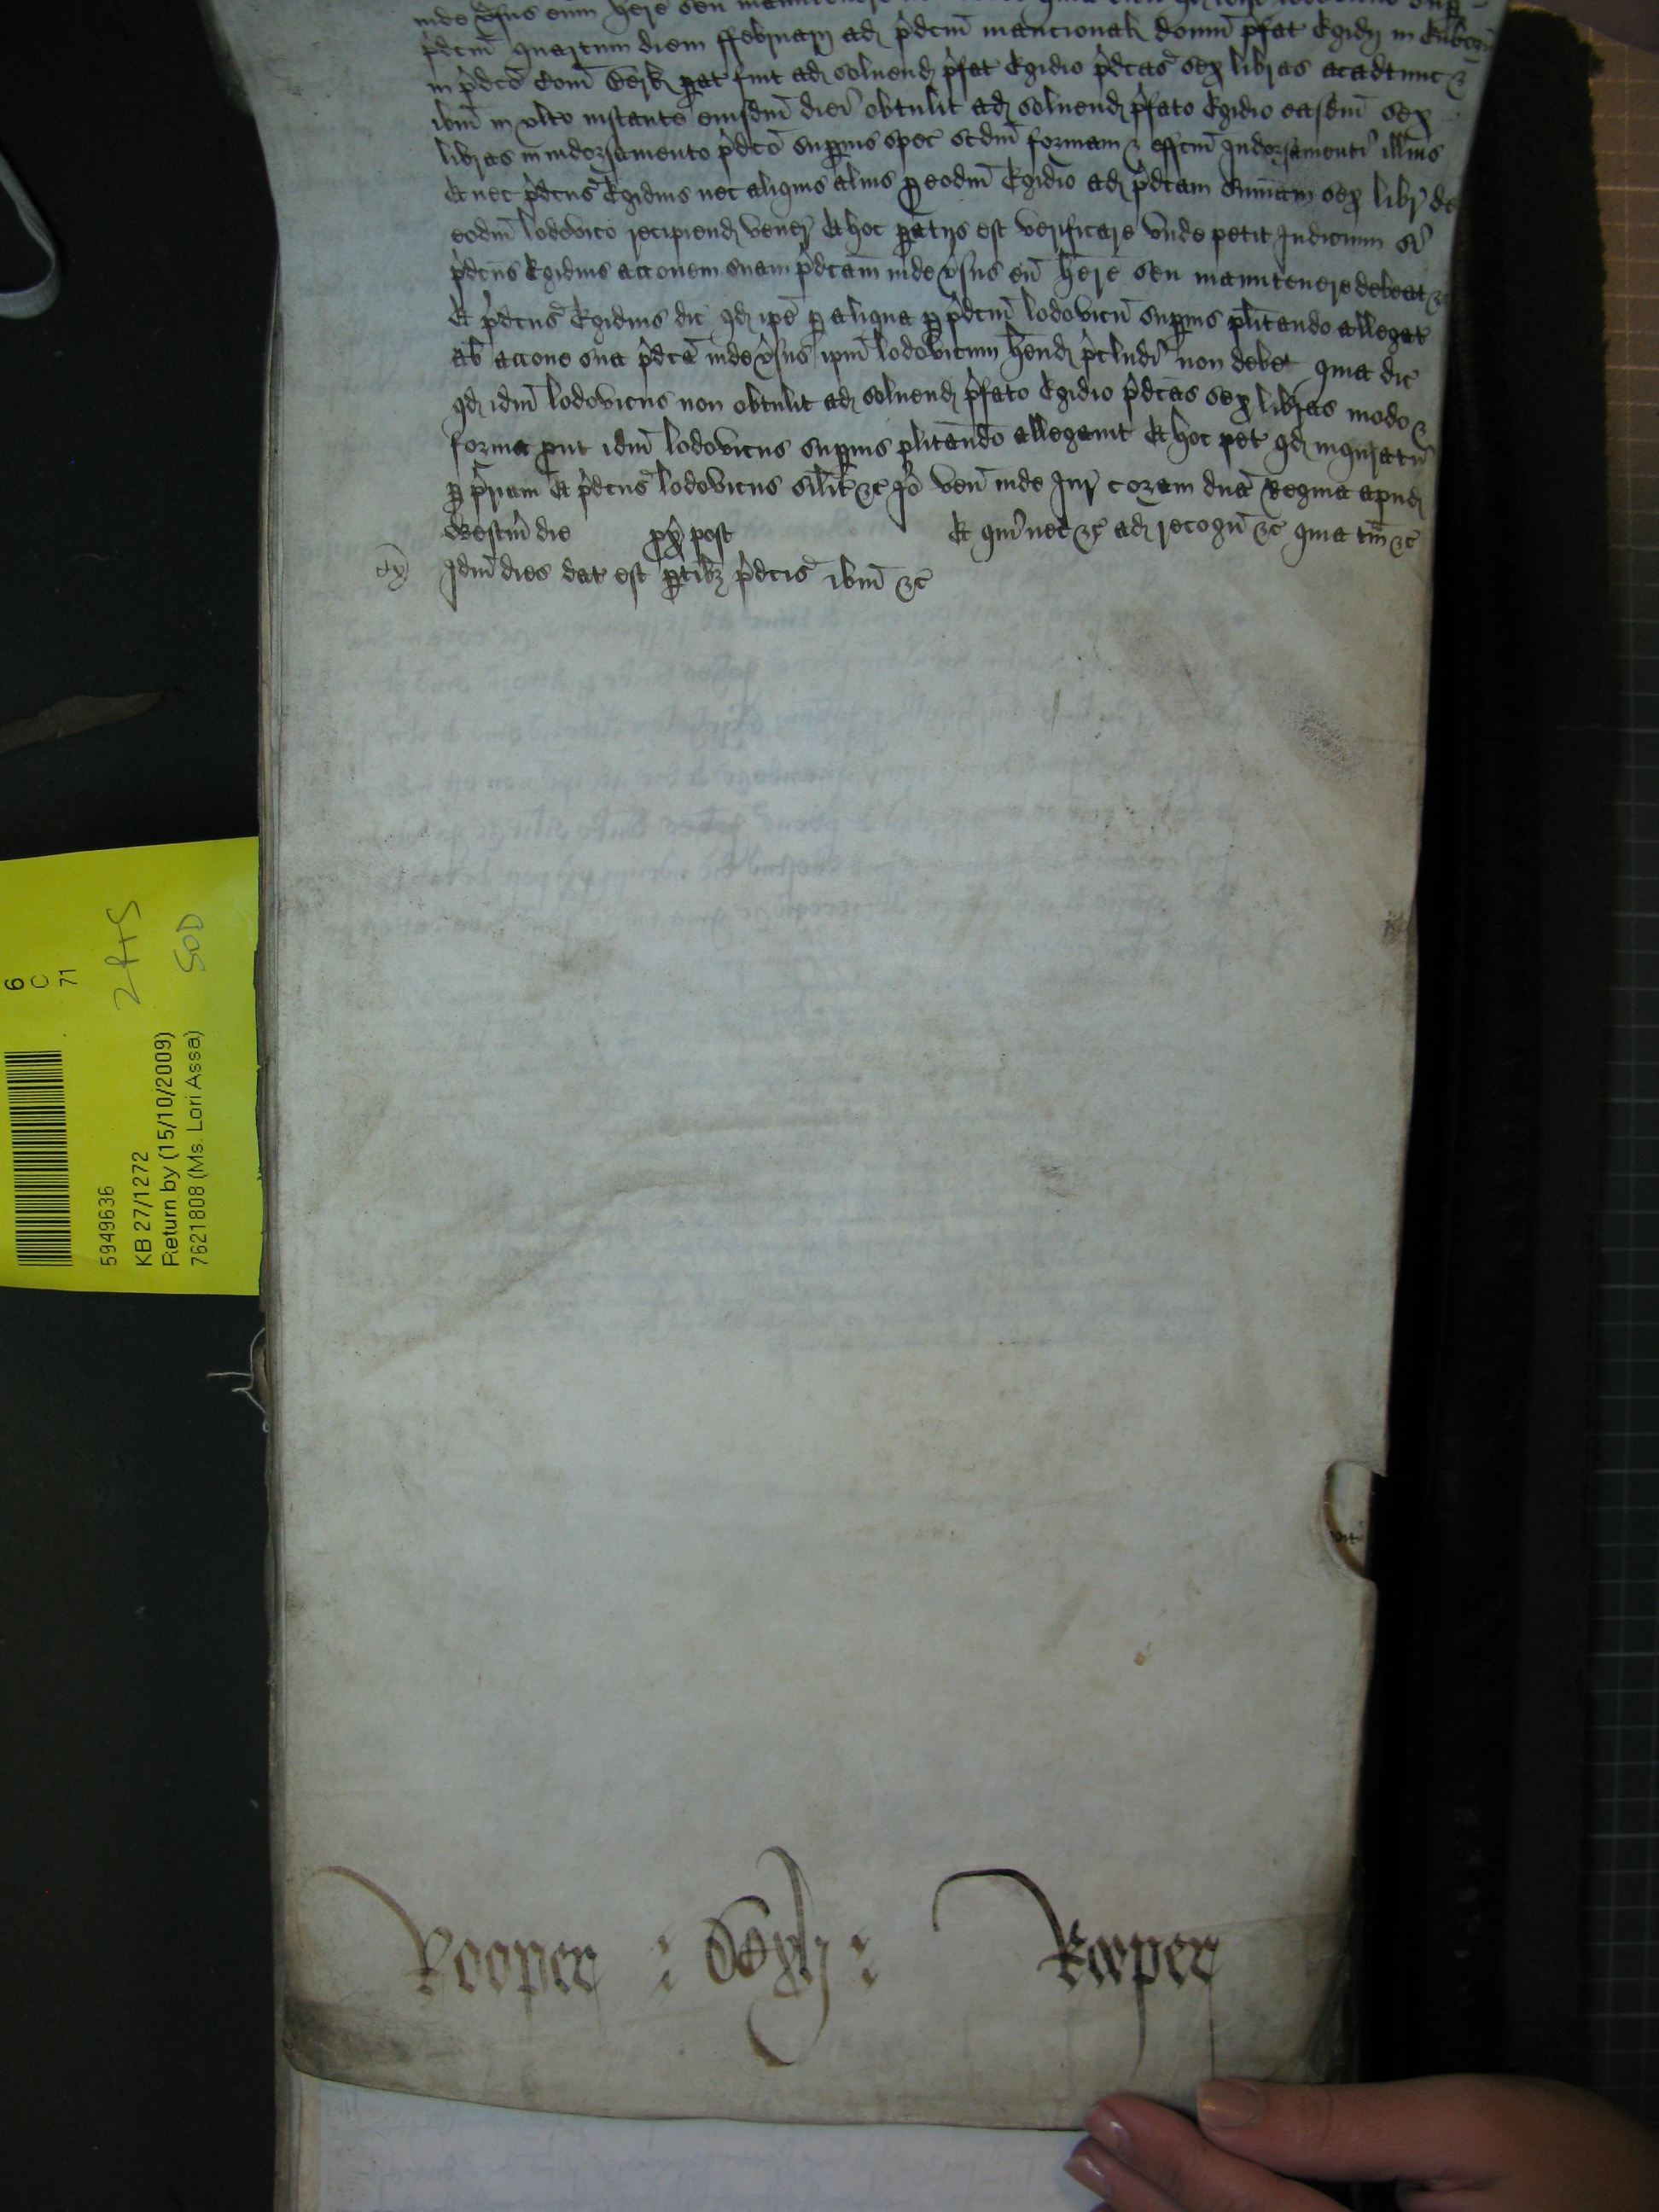 inde v̓sus eum h̄ere seu manutenere
p̓dcm̄ quartum diem ffebruarij ad p̓dcm̄ mancional domū p̓fat Egidij in
in p̓dco Com̄ Berk parat fuit ad soluend p̓fat Egidio p̓dcas sex libras acadtunc &
ibm̄ in vlto instante eiusdm̄ diei obtulit ad soluend p̓fato Egidio easdem sex
libras in indorsamento p̓dco superius spec scdm̄ formam & effcm̄ Indorsamenti illius
Et nec p̓dcus Egidius nec aliquis alius p eodm̄ Egidio ad p̓dcam Sum̄am sex libr de
eodm̄ lodovico recipiend vener Et hoc paratus est verificare vnde petit Iudicium si
p̓dcus Egidius acconem suam p̓dcam inde v̓sus eū h̄ere seu manutenere debeat &c
Et p̓dcus Egidius dic qd ip̄e p aliqua p p̓dcm̄ lodovicū superius pl̄itando allegat
ab accone sua p̓dca inde v̓sus ipm̄ lodovicum h̄end p̓cludi non debet quia dic
qd idm̄ lodovicus non obtulit ad soluend p̓fato Egidio p̓dcas sex libras modo &
forma put idm̄ lodovicus superius pl̄itando allegauit Et hoc pet qd inquiratur
p p̓riam Et p̓dcus lodovicus silit &c Io ven̄ inde Iur coram dn̄a Regina apud
Westm̄ die px̄ post Et qui nec &c ad recogn̄ &c quia tam &c
Idm̄ dies dat est partib3 p̓dcis ibm̄ &c
Rooper : : Rooper
6
C
71
2ft9
SOD
5949636
KB 27/1272
Return by (15/10/2009)
7621808 (Ms. Lori Assa)